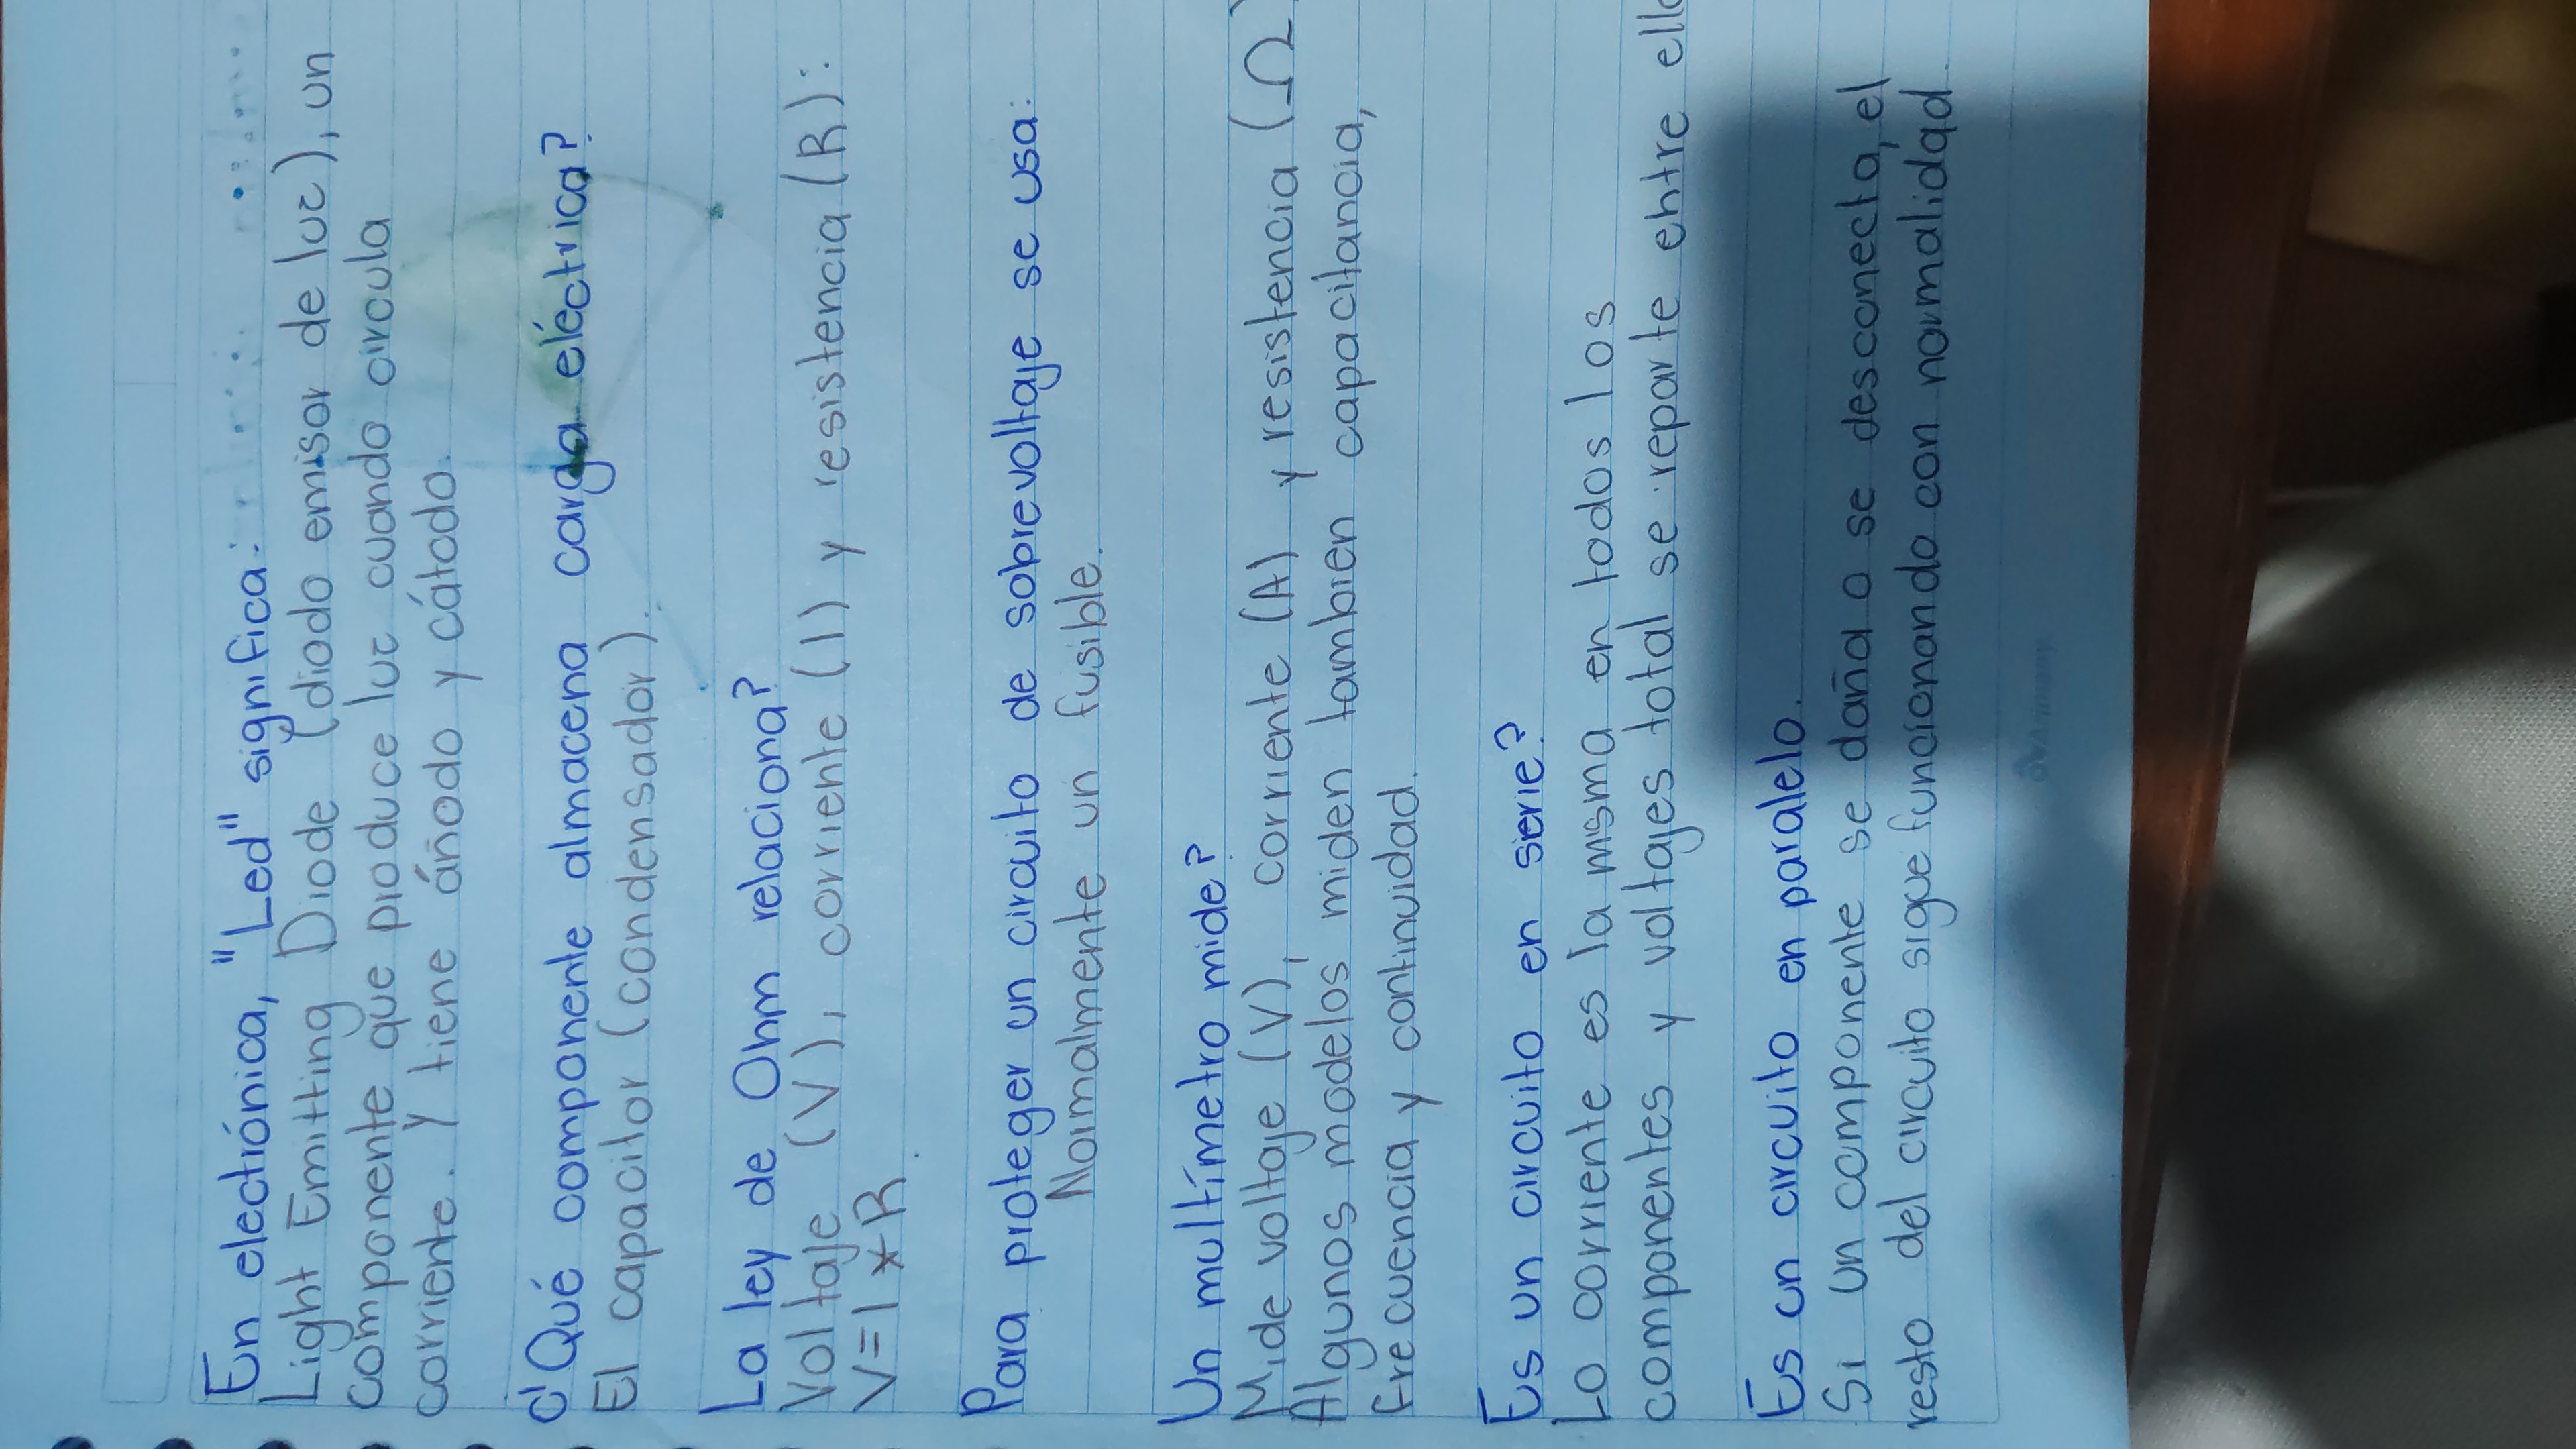 En electrónica, "Led" significa:
Light Emitting Diode (diodo emisor de luz), un
componente que produce luz cuando circula
corriente. y tiene ánodo y cátodo.
¿Qué componente almacena carga eléctrica?
El capacitor (condensador).
La ley de Ohm relaciona?
Voltaje (V), corriente (I) y resistencia (R):
V=I*R.
Para proteger un circuito de sobrevoltaje se usa:
Normalmente un fusible.
Un multímetro mide?
Mide voltaje (V), corriente (A) y resistencia (Ω)
Algunos modelos miden tambien capacitancia,
frecuencia y continuidad.
Es un circuito en serie?
Lo corriente es la misma en todos los
componentes y voltajes total se reparte entre
Es un circuito en paralelo.
Si un componente se daña o se desconecta, el
resto del circuito sigue funcionando con normalidad.